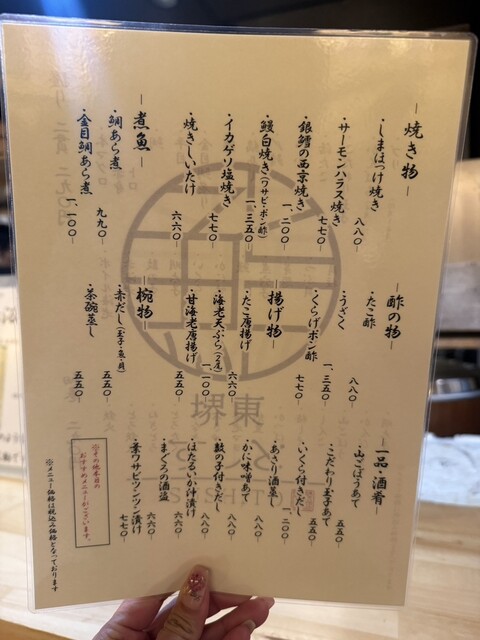 ー焼き物ー
・しまほっけ焼き 八八〇ー
・サーモンハラス焼き 七七〇ー
・銀鱈の西京焼き 一、二〇〇ー
・鰻白焼き(ワサビ・ポン酢) 一、三五〇ー
・イカゲソ塩焼き 七七〇ー
・焼きしいたけ 六六〇ー
ー煮魚ー
・鯛あら煮 九九〇ー
・金目鯛あら煮 一、一〇〇ー
ー酢の物ー
・たこ酢 八八〇ー
・うざく 一、三五〇ー
・くらげポン酢 七七〇ー
ー揚げ物ー
・たこ唐揚げ 六六〇ー
・海老天ぷら(2尾) 一、一〇〇ー
・甘海老唐揚げ 五五〇ー
ー椀物ー
・赤だし(玉子・魚・貝) 五五〇ー
・茶碗蒸し 五五〇ー
ー一品・酒肴ー
・山ごぼうあて 五五〇ー
・こだわり玉子あて 五五〇ー
・いくら付きだし 一、二〇〇ー
・あさり酒蒸し 八八〇ー
・かに味噌あて 八八〇ー
・数の子付きだし 八八〇ー
・ほたるいか沖漬け 六六〇ー
・まぐろの酒盗 六六〇ー
・葉ワサビツンツン漬け 七七〇ー
※その他本日の
おすすめメニューがございます。
※メニュー価格は税込み価格となっております
堺東